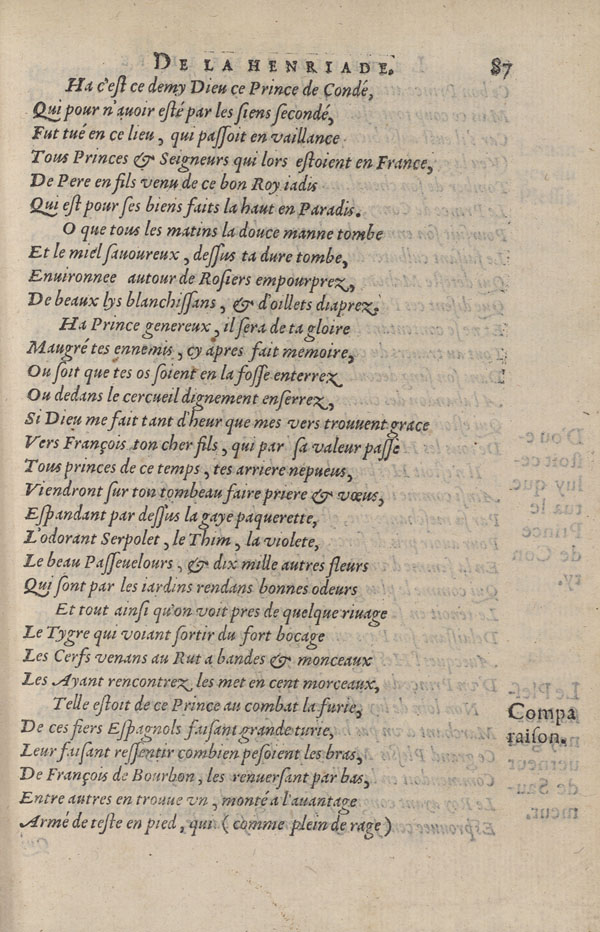 DE LA HENRIADE. 87
Ha c'est ce demy Dieu ce Prince de Condé,
Qui pour n'auoir esté par les siens secondé,
Fut tué en ce lieu, qui passoit en vaillance
Tous Princes & Seigneurs qui lors estoient en France,
De Pere en fils venu de ce bon Roy iadis
Qui est pour ses biens faits la haut en Paradis.
O que tous les matins la douce manne tombe
Et le miel sauoureux, dessus ta dure tombe,
Enuironnee autour de Rosiers empourprez,
De beaux lys blanchissans, & d'oillets diaprez.
Ha Prince genereux, il sera de ta gloire
Maugré tes ennemis, cy apres fait memoire,
Ou soit que tes os soient en la fosse enterrez
Ou dedans le cercueil dignement enserrez,
Si Dieu me fait tant d'heur que mes vers trouuent grace
Vers François ton cher fils, qui par sa valeur passe
Tous princes de ce temps, tes arriere nepueus,
Viendront sur ton tombeau faire priere & vœus,
Espandant par dessus la gaye paquerette,
L'odorant Serpolet, le Thim, la violete,
Le beau Passeuelours, & dix mille autres fleurs
Qui sont par les iardins rendans bonnes odeurs
Et tout ainsi qu'on voit pres de quelque riuage
Le Tygre qui voiant sortir du fort bocage
Les Cerfs venans au Rut a bandes & monceaux
Les Ayant rencontrez les met en cent morceaux,
Telle estoit de ce Prince au combat la furie,
De ces fiers Espagnols faisant grande turie,
Leur faisant ressentir combien pesoient les bras,
De François de Bourbon, les renuersant par bas,
Entre autres en trouue vn, monté a l'auantage
Armé de teste en pied, qui (comme plein de rage)
Compa
raison.